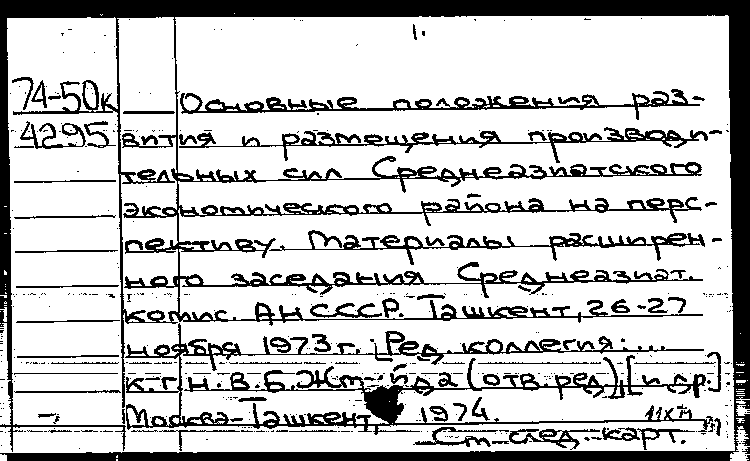 1.
74-50к Основные положения раз-
4295 вития и размещения производи-
тельных сил Среднеазиатского
экономического района на перс-
пективу. Материалы расширен-
ного заседания Среднеазиат.
комис. АН СССР. Ташкент, 26-27
ноября 1973 г. [Ред. коллегия: ...
к.г.н. В.Б. (отв. ред), [и др.]
Москва-Ташкент, 1974.
См. след. карт.